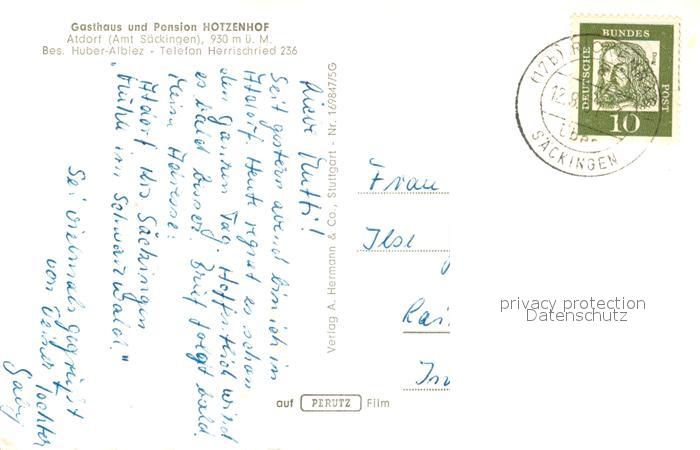 Gasthaus und Pension HOTZENHOF
Atdorf (Amt Säckingen), 930 m ü. M.
Bes. Huber-Albiez - Telefon Herrischried 236
Liebe Mutti!
Seit gestern abend bin ich in
Atdorf. Heute regnet es schon
den ganzen Tag. Hoffentlich wird
es bald besser. Brief folgt bald.
Meine Adresse:
Atdorf Krs Säckingen
"Mühle im Schwarzwald."
Sei vielmals gegrüßt
von Deiner Tochter
Gaby
Verlag A. Hermann & Co., Stuttgart - Nr. 169847/5G
auf PERUTZ Film
DEUTSCHE BUNDES POST
10
(17b)
12.8
SÄCKINGEN
Frau
Ilse
privacy protection
Datenschutz